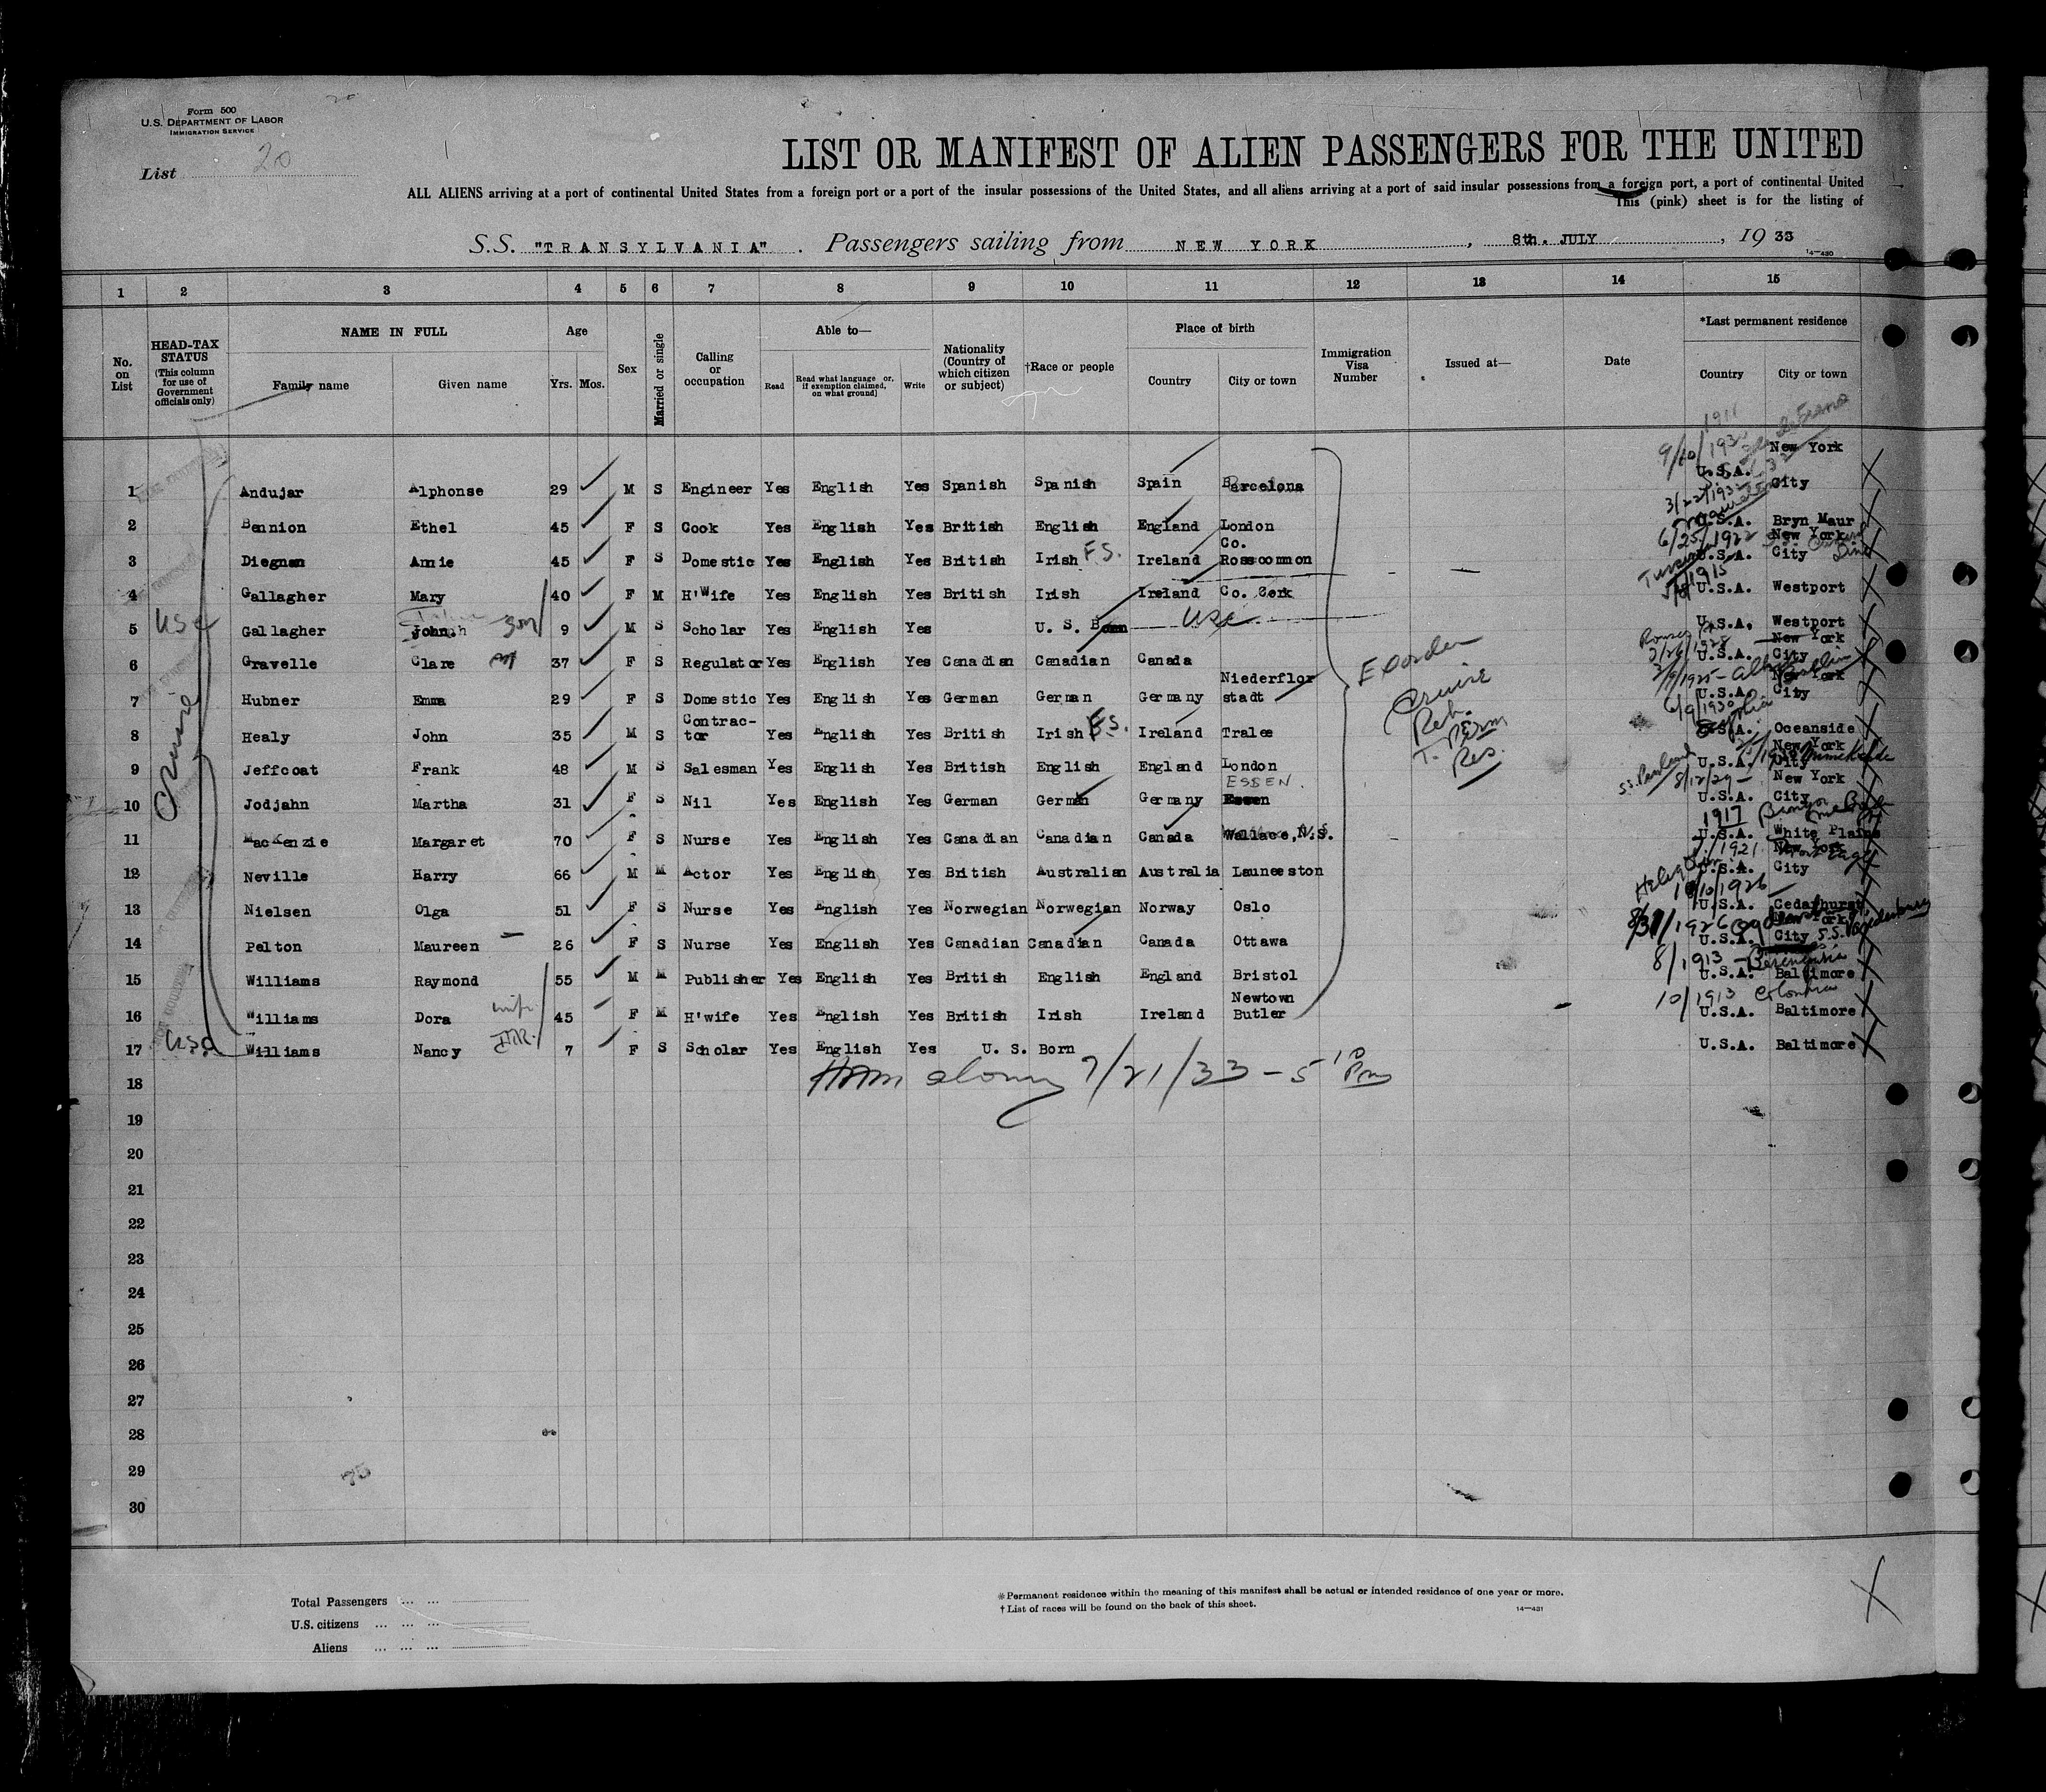 Form 500
U.S. DEPARTMENT OF LABOR
IMMIGRATION SERVICE
List 20
LIST OR MANIFEST OF ALIEN PASSENGERS FOR THE UNITED
ALL ALIENS arriving at a port of continental United States from a foreign port or a port of the insular possessions of the United States, and all aliens arriving at a port of said insular possessions from a foreign port, a port of continental United
This (pink) sheet is for the listing of
S.S. "TRANSYLVANIA". Passengers sailing from NEW YORK, 8th. JULY, 1933
14—430
1 2 3 4 5 6 7 8 9 10 11 12 13 14 15
No. on List
HEAD-TAX STATUS (This column for use of Government officials only)
NAME IN FULL
Family name Given name
Age
Yrs. Mos.
Sex
Married or single
Calling or occupation
Able to—
Read Read what language or, if exemption claimed, on what ground] Write
Nationality (Country of which citizen or subject)
†Race or people
Place of birth
Country City or town
Immigration Visa Number
Issued at—
Date
*Last permanent residence
Country City or town
1 Andujar Alphonse 29 M S Engineer Yes English Yes Spanish Spanish Spain Barcelona U.S.A. New York City
3/22/1932
2 Bennion Ethel 45 F S Cook Yes English Yes British English England London U.S.A. Bryn Maur
6/25/1922
3 Diegnan Annie 45 F S Domestic Yes English Yes British Irish F.S. Ireland Co. Roscommon U.S.A. New York City
4 Gallagher Mary 40 F M H'Wife Yes English Yes British Irish Ireland Co. Cork U.S.A. Westport
5 USC Gallagher John son 9 M S Scholar Yes English Yes U. S. Born USC U.S.A. Westport
6 Gravelle Clare 37 F S Regulator Yes English Yes Canadian Canadian Canada U.S.A. New York City
7 Hubner Emma 29 F S Domestic Yes English Yes German German Germany Niederflorstadt U.S.A. New York City
6/9/1930
8 Healy John 35 M S Contrac-tor Yes English Yes British Irish F.S. Ireland Tralee U.S.A. Oceanside
9 Jeffcoat Frank 48 M S Salesman Yes English Yes British English England London U.S.A. New York City
8/12/29
10 Jodjahn Martha 31 F S Nil Yes English Yes German German Germany Essen ESSEN. U.S.A. New York City
1917
11 MacKenzie Margaret 70 F S Nurse Yes English Yes Canadian Canadian Canada Wallace, N.S. U.S.A. White Plains
12 Neville Harry 66 M M Actor Yes English Yes British Australian Australia Launceston U.S.A. New York City
10/10/1926
13 Nielsen Olga 51 F S Nurse Yes English Yes Norwegian Norwegian Norway Oslo U.S.A. Cedarhurst
14 Pelton Maureen 26 F S Nurse Yes English Yes Canadian Canadian Canada Ottawa U.S.A. New York City
8/1913 - Berengaria
15 Williams Raymond 55 M M Publisher Yes English Yes British English England Bristol U.S.A. Baltimore
10/1913 Columbia
16 Williams Dora wife 45 F M H'wife Yes English Yes British Irish Ireland Newtown Butler U.S.A. Baltimore
17 USC Williams Nancy 7 F S Scholar Yes English Yes U. S. Born U.S.A. Baltimore
Cruise
Cruise
Ret.
T. Perm
Res.
7/21/33 - 5 10 Pm
18
19
20
21
22
23
24
25
26
27
28
29
30
Total Passengers
U.S. citizens
Aliens
*Permanent residence within the meaning of this manifest shall be actual or intended residence of one year or more.
† List of races will be found on the back of this sheet.
14—431